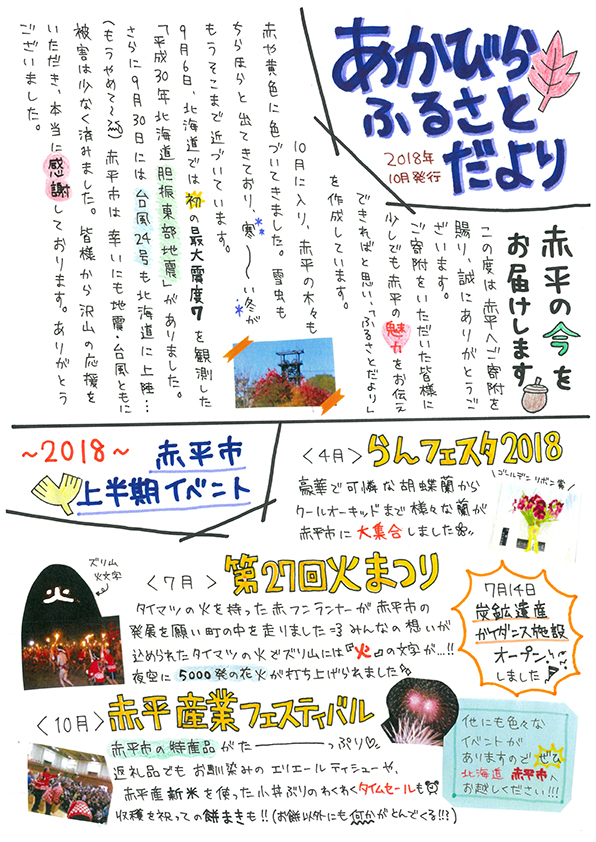 あかびら
ふるさと
だより
2018年
10月発行
赤平の今を
お届けします
この度は赤平へご寄附を
賜り、誠にありがとうご
ざいます。
ご寄附をいただいた皆様に
少しでも赤平の魅力をお伝え
できればと思い、「ふるさとだより」
を作成しています。
10月に入り、赤平の木々も
赤や黄色に色づいてきました。雪虫も
ちらほらと出てきており、寒〜い冬が
もうそこまで近づいています。
9月6日、北海道では初の最大震度7を観測した
「平成30年北海道胆振東部地震」がありました。
さらに9月30日には台風24号も北海道に上陸…
(もうやめて〜) 赤平市は幸いにも地震・台風ともに
被害は少なく済みました。皆様から沢山の応援を
いただき、本当に感謝しております。ありがとう
ございました。
〜2018〜
赤平市
上半期イベント
<4月> らんフェスタ2018
豪華で可憐な胡蝶蘭から
クールオーキッドまで様々な蘭が
赤平市に大集合しました
ゴールデンリボン賞
ズリ山
火文字
<7月> 第27回火まつり
タイマツの火を持った赤フンランナーが赤平市の
発展を願い町の中を走りました=3 みんなの想いが
込められたタイマツの火でズリ山には『火』の文字が…!!
夜空に5000発の花火が打ち上げられました
7月14日
炭鉱遺産
ガイダンス施設
オープン
しました
<10月> 赤平産業フェスティバル
赤平市の特産品がた――――っぷり♡
返礼品でもお馴染みのエリエールティシューや、
赤平産新米を使った小丼ぶりのわくわくタイムセールも
収穫を祝っての餅まきも!!(お餅以外にも何かがとんでくる!!?)
他にも色々な
イベントが
ありますので ぜひ
北海道 赤平市へ
お越しください!!!